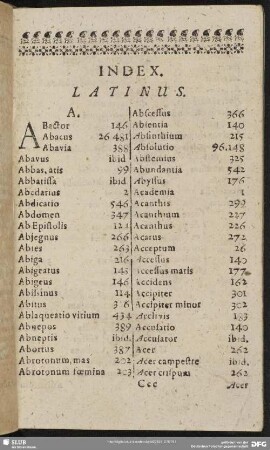 INDEX.
LATINUS.
A.
ABactor 146
Abacus 26.481
Abavia 388
Abavus ibid
Abbas, atis 99
Abbatissa ibid.
Abcdarius 2
Abdicatio 546
Abdomen 347
Ab Epistolis 121
Abjegnus 266
Abies 263
Abiga 216
Abigeatus 145
Abigeus 146
Abitus
Ablaqueatio vitium 434
Abnepos 389
Abneptis ibid.
Abortus 387
Abrotonum, mas 202
Abrotonum fœmina 203
Abscessus 366
Absentia 140
Absinthium 215
Absolutio 96.148
Abstemius 325
Abundantia 542
Abyssus 176
Academia 1
Acanthis 299
Acanthium 227
Acanthus 226
Acatus 272
Acceptum 26
Accessus 140
Accessus maris 177
Accidens 162
Accipiter 301
Accipiter minor 302
Acclivis 183
Accusatio 140
Accusator ibid.
Acer 262
Acer campestre ibid.
Acer crispum 262
Ccc Acer
SLUB
DFG